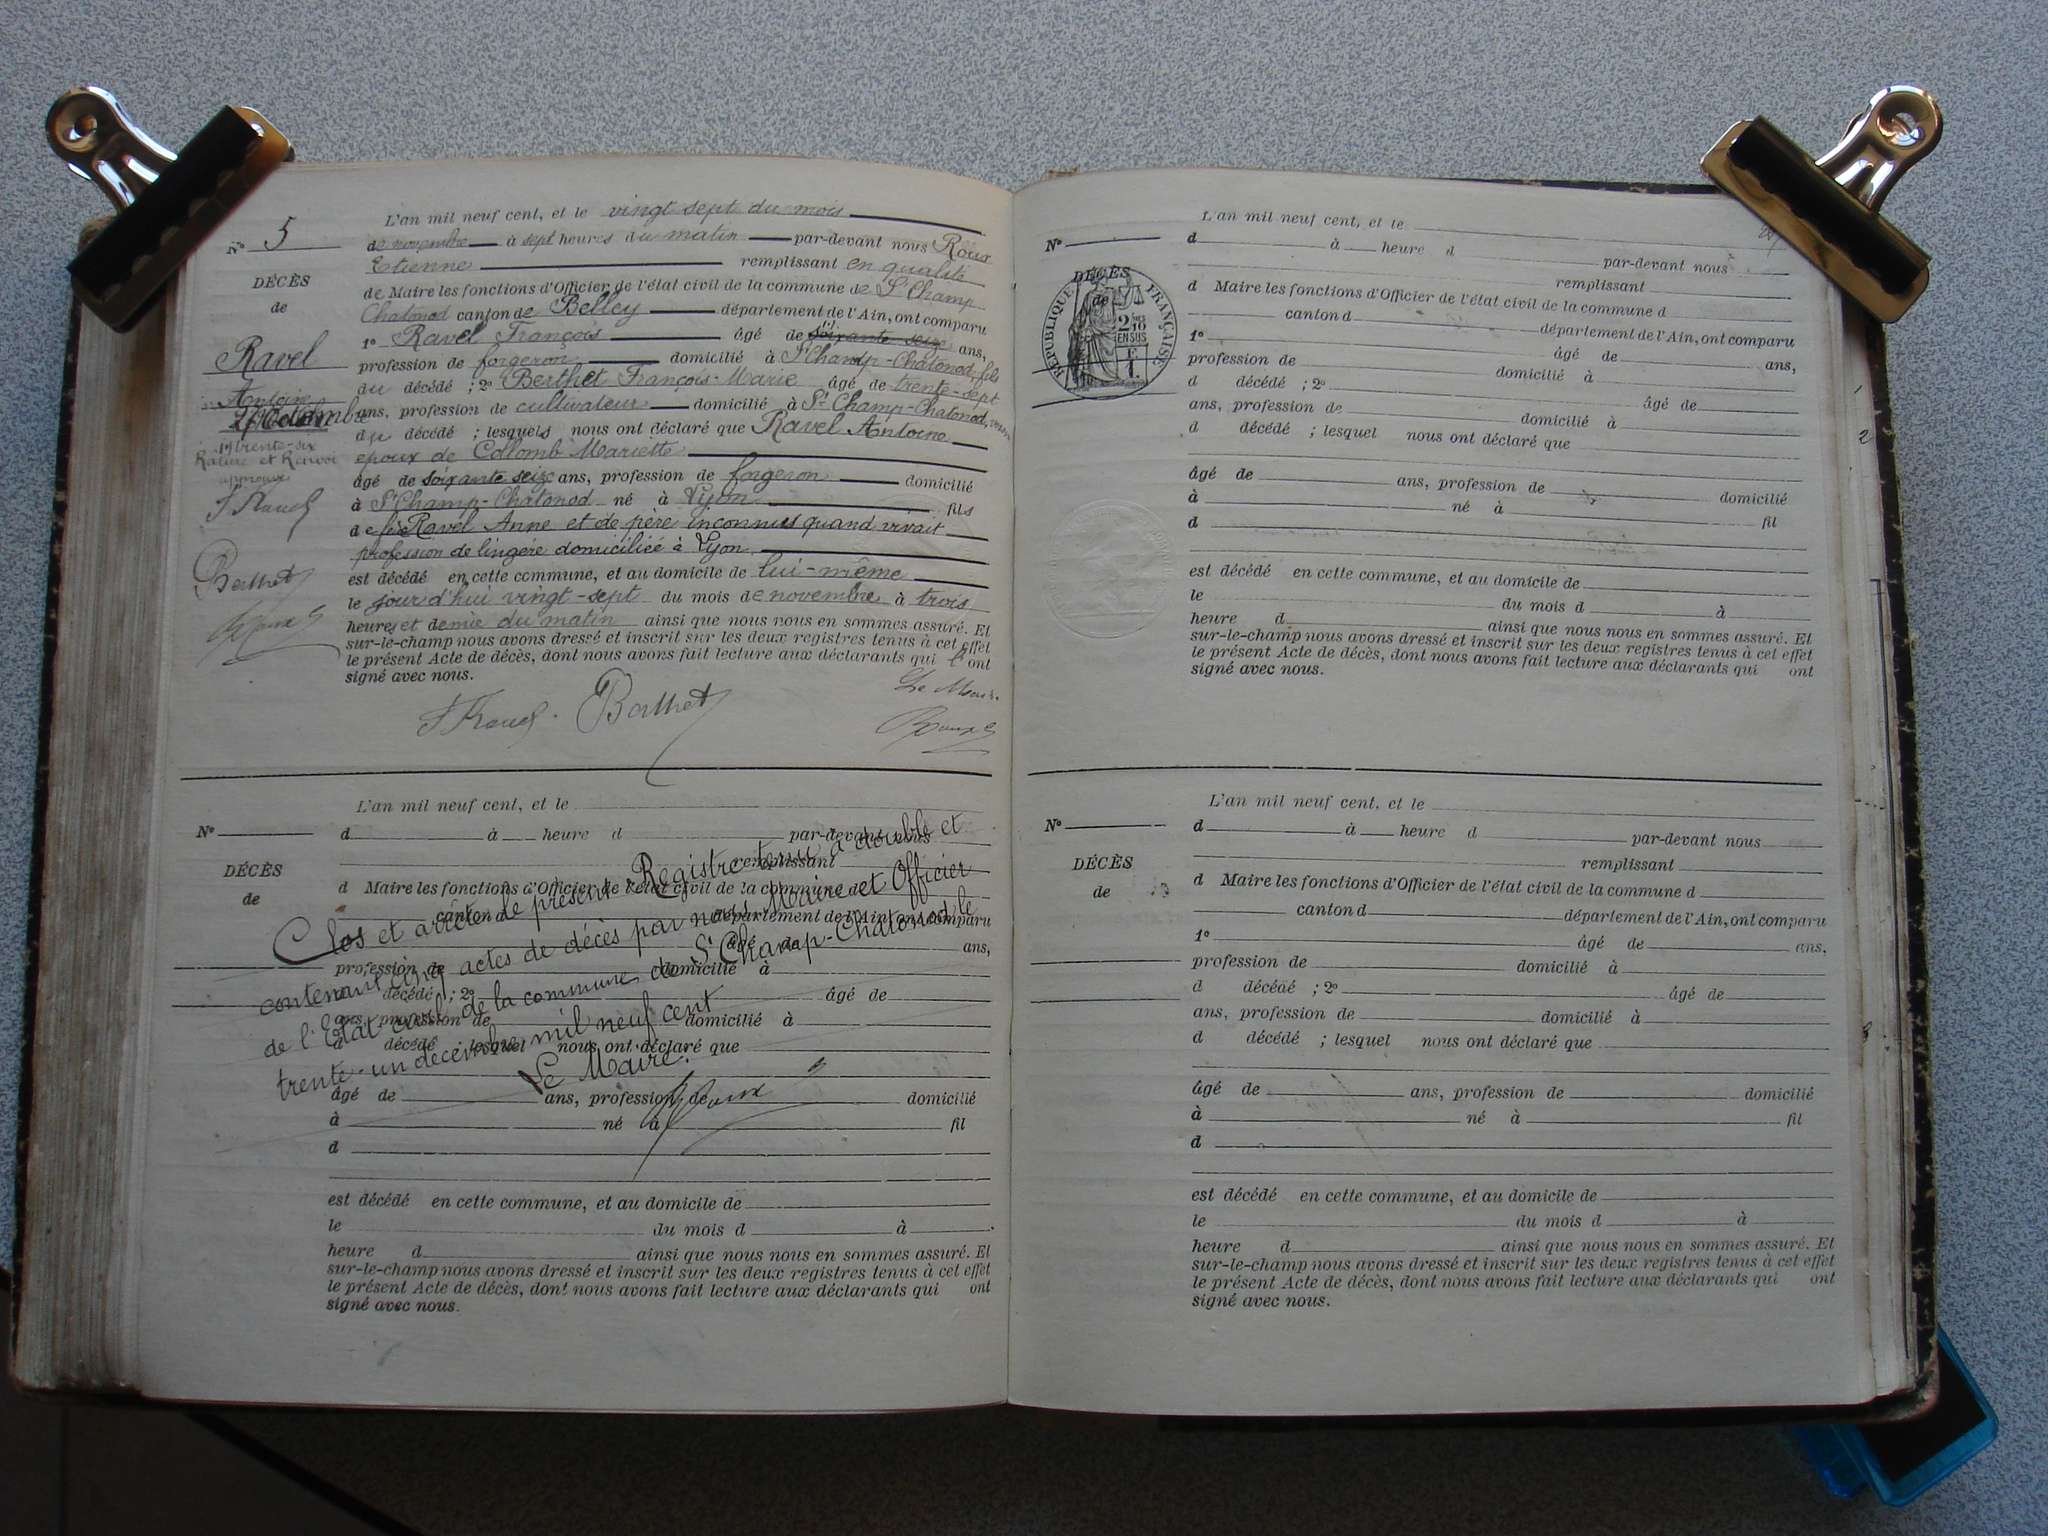 L'an mil neuf cent, et le vingt sept du mois
N° 5
de novembre à sept heures du matin par-devant nous Roux
Etienne remplissant en qualité
DÉCÈS
de Maire les fonctions d'Officier de l'état civil de la commune de St Champ
de
Chatonod canton de Belley département de l'Ain, ont comparu
1° Ravel François âgé de soixante seize ans,
Ravel
profession de forgeron domicilié à St Champ-Chatonod, fils
Antoine
du décédé ; 2° Berthet François-Marie âgé de trente-sept
ans, profession de cultivateur domicilié à St Champ-Chatonod,
du décédé ; lesquels nous ont déclaré que Ravel Antoine
(1) trente-six
Rature et Renvoi
époux de Collomb Mariette
approuvés
âgé de soixante seize ans, profession de forgeron domicilié
à St Champ-Chatonod né à Lyon fils
de Ravel Anne et de père inconnus quand vivait
profession de lingère domiciliée à Lyon
Berthet
est décédé en cette commune, et au domicile de lui-même
le jour d'hui vingt-sept du mois de novembre à trois
Roux
heures et demie du matin ainsi que nous nous en sommes assuré. Et
sur-le-champ nous avons dressé et inscrit sur les deux registres tenus à cet effet
le présent Acte de décès, dont nous avons fait lecture aux déclarants qui l'ont
signé avec nous.
Le Maire
Berthet
Roux
L'an mil neuf cent, et le
N°
d à heure d par-devant nous
remplissant
DÉCÈS
d Maire les fonctions d'Officier de l'état civil de la commune d
de
canton d département de l'Ain, ont comparu
1° âgé de ans,
profession de domicilié à
d décédé ; 2° âgé de
ans, profession de domicilié à
d décédé ; lesquel nous ont déclaré que
âgé de ans, profession de domicilié
à né à fil
d
est décédé en cette commune, et au domicile de
le du mois d à
heure d ainsi que nous nous en sommes assuré. Et
sur-le-champ nous avons dressé et inscrit sur les deux registres tenus à cet effet
le présent Acte de décès, dont nous avons fait lecture aux déclarants qui ont
signé avec nous.
Clos et arrêté le présent Registre tenu à double et
contenant cinq actes de décès par nous Maire et Officier
de l'Etat civil de la commune de St Champ-Chatonod le
trente-un décembre mil neuf cent
Le Maire.
Roux
L'an mil neuf cent, et le
N°
d à heure d par-devant nous
remplissant
DÉCÈS
de
RÉPUBLIQUE FRANÇAISE
2/10 EN SUS
d Maire les fonctions d'Officier de l'état civil de la commune d
canton d département de l'Ain, ont comparu
1° âgé de ans,
profession de domicilié à
d décédé ; 2° âgé de
ans, profession de domicilié à
d décédé ; lesquel nous ont déclaré que
âgé de ans, profession de domicilié
à né à fil
d
est décédé en cette commune, et au domicile de
le du mois d à
heure d ainsi que nous nous en sommes assuré. Et
sur-le-champ nous avons dressé et inscrit sur les deux registres tenus à cet effet
le présent Acte de décès, dont nous avons fait lecture aux déclarants qui ont
signé avec nous.
L'an mil neuf cent, et le
N°
d à heure d par-devant nous
remplissant
DÉCÈS
d Maire les fonctions d'Officier de l'état civil de la commune d
de
canton d département de l'Ain, ont comparu
1° âgé de ans,
profession de domicilié à
d décédé ; 2° âgé de
ans, profession de domicilié à
d décédé ; lesquel nous ont déclaré que
âgé de ans, profession de domicilié
à né à fil
d
est décédé en cette commune, et au domicile de
le du mois d à
heure d ainsi que nous nous en sommes assuré. Et
sur-le-champ nous avons dressé et inscrit sur les deux registres tenus à cet effet
le présent Acte de décès, dont nous avons fait lecture aux déclarants qui ont
signé avec nous.